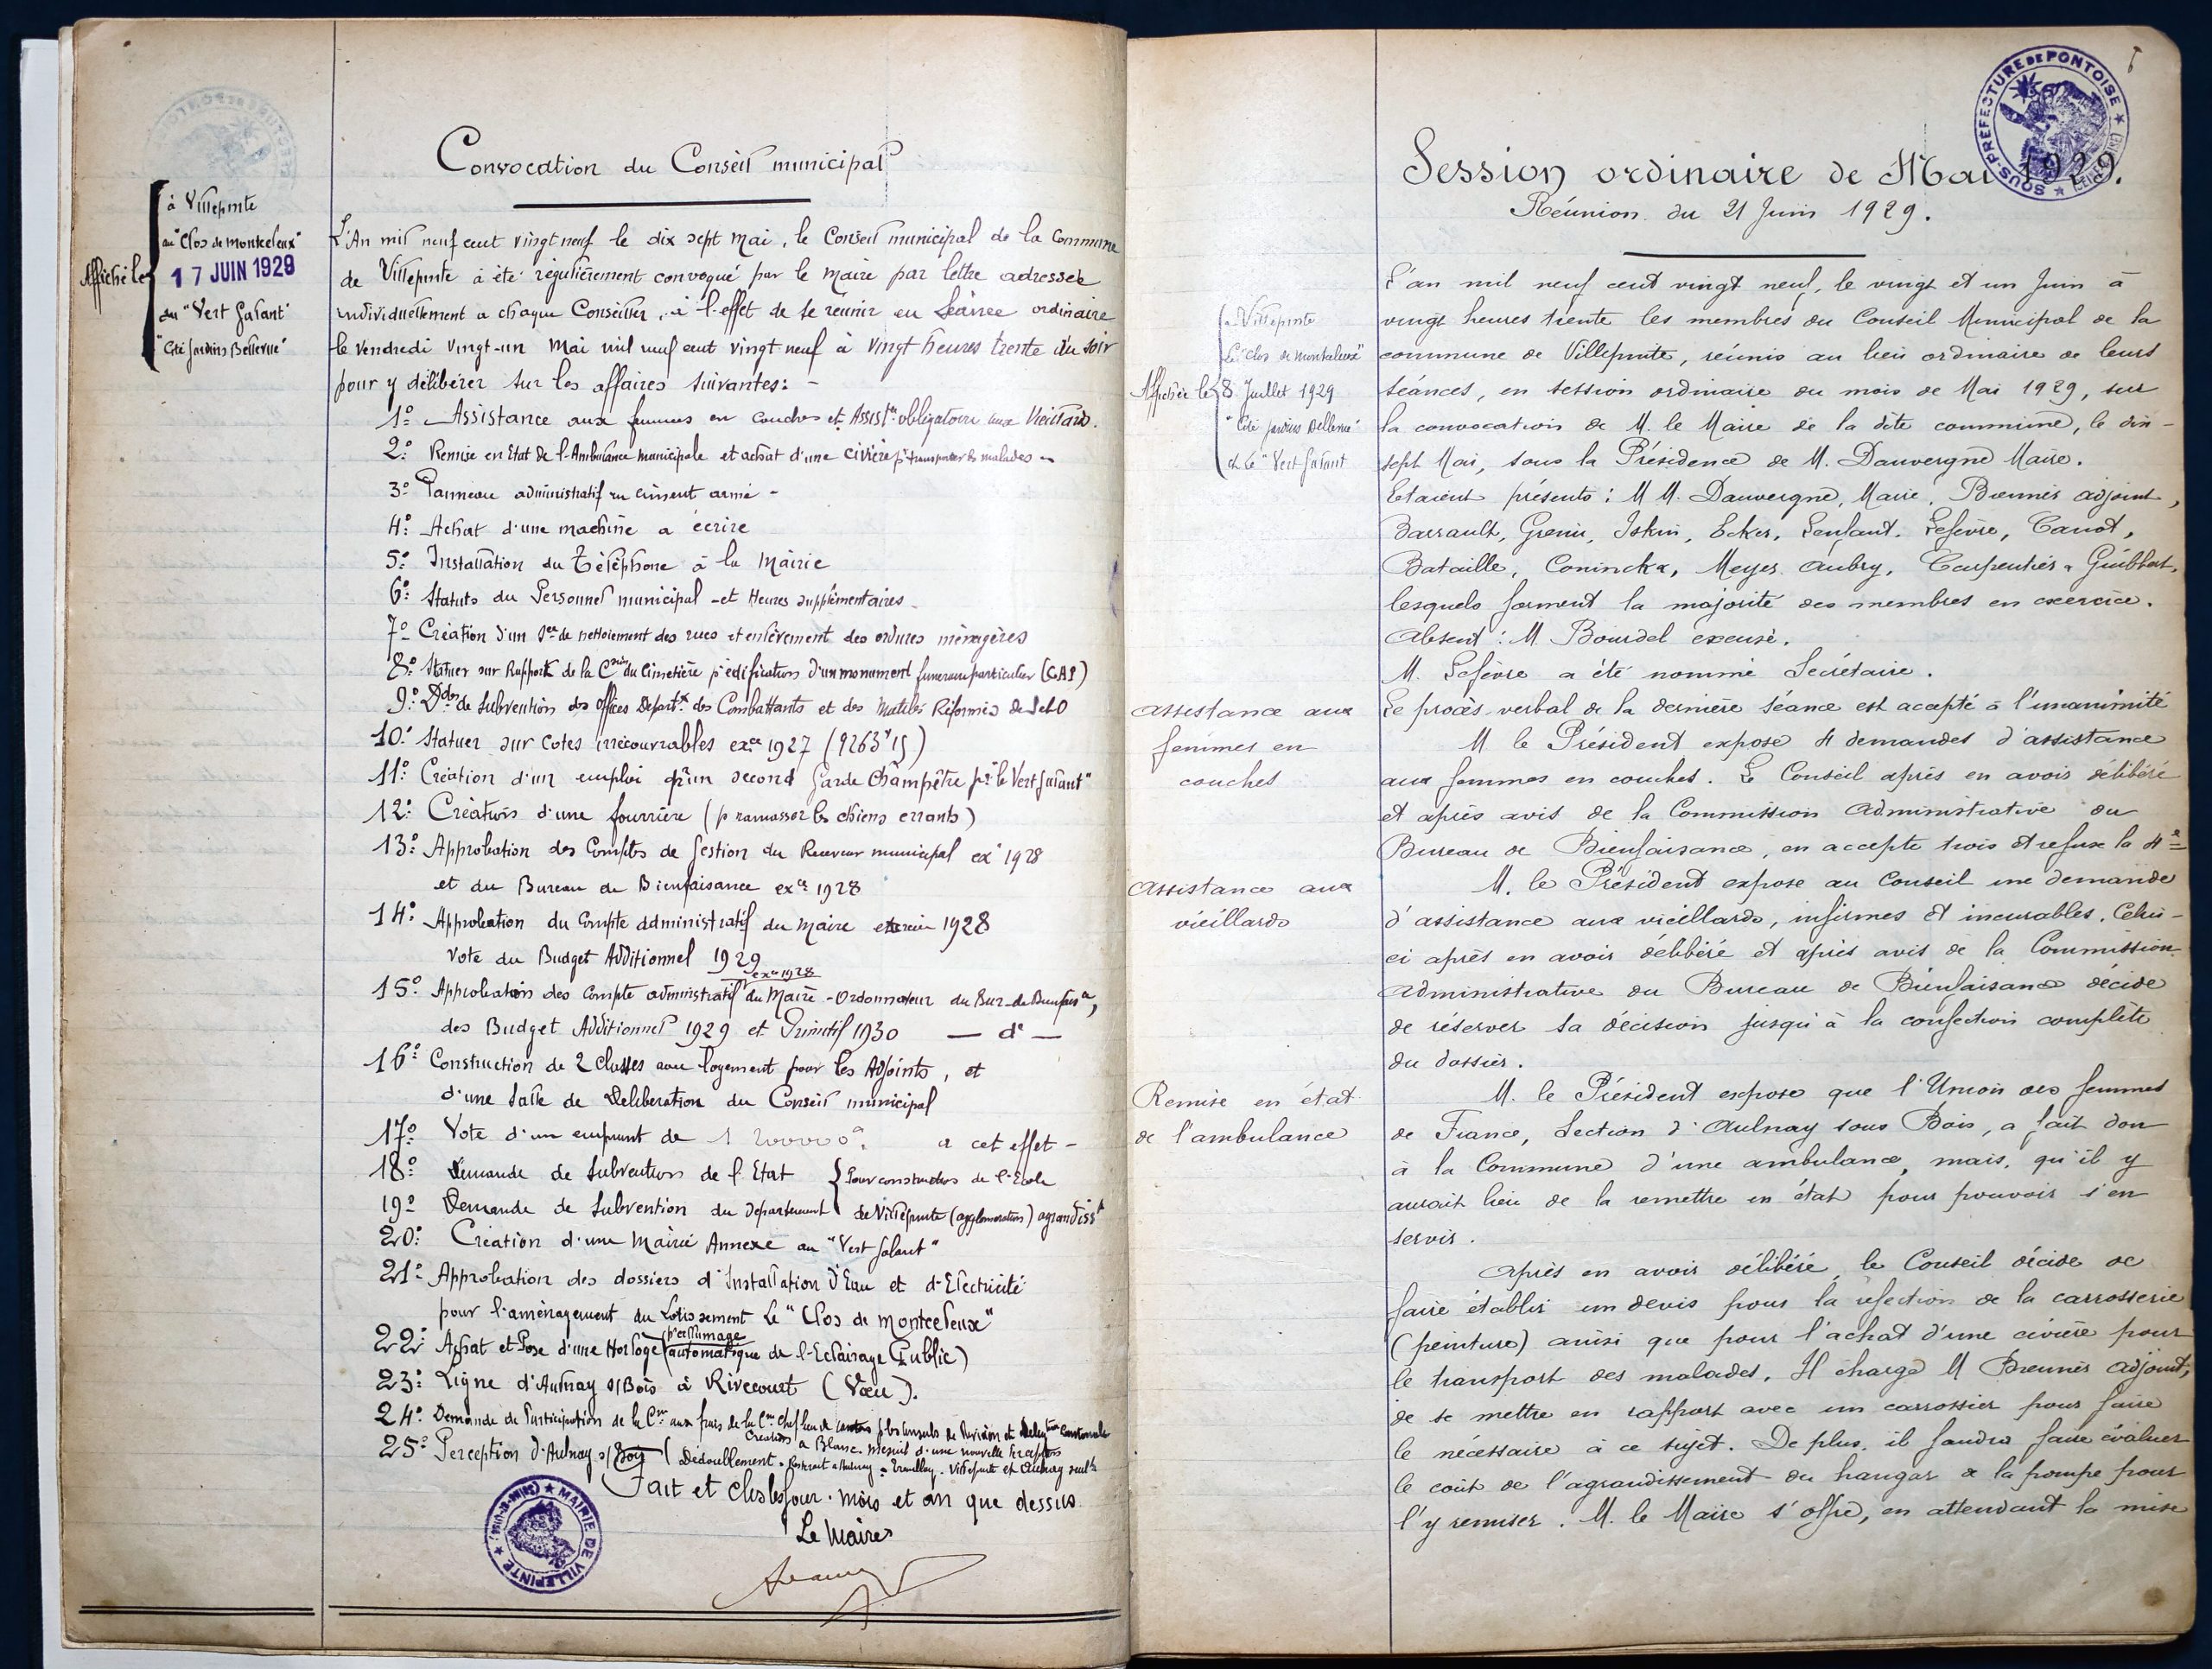 Convocation du Conseil municipal
Affiché le
à Villepinte
au "Clos de Montceleux"
17 JUIN 1929
au "Vert Galant"
"Cité Jardins Bellevue"
L'An mil neuf cent vingt neuf le dix sept Mai, le Conseil municipal de la Commune
de Villepinte a été régulièrement convoqué par le Maire par lettre adressée
individuellement a chaque Conseiller, à l'effet de se réunir en Séance ordinaire
le Vendredi Vingt-un Mai mil neuf cent vingt neuf à Vingt heures trente du soir
pour y délibérer sur les affaires suivantes: -
1º Assistance aux femmes en couches et Assistce obligatoire aux Vieillards.
2º Remise en Etat de l'Ambulance municipale et achat d'une civière pr transporter les malades
3º Panneau administratif en ciment armé -
4º Achat d'une machine a écrire
5º Installation du Téléphone à la Mairie
6º Statuts du Personnel municipal - et Heures supplémentaires
7º Création d'un Sce de nettoiement des rues et enlèvement des ordures ménagères
8º Statuer sur Rapport de la Con du Cimetière pr édification d'un monument funéraire particulier (GAI)
9º Ddes de Subvention des Offices Départx des Combattants et des Mutilés Réformés de S et O
10º Statuer sur cotes irrécouvrables exce 1927 (9263f15)
11º Création d'un emploi pr un second Garde Champêtre pr "le Vert Galant"
12º Création d'une fourrière (p ramasser les chiens errants)
13º Approbation des Comptes de Gestion du Receveur municipal exe 1928
et du Bureau de Bienfaisance exce 1928
14º Approbation du Compte administratif du Maire exercice 1928
Vote du Budget Additionnel 1929
exce 1928
15º Approbation des Compte administratif du Maire - Ordonnateur du Bur. de Bienfaisce,
des Budget Additionnel 1929 et Primitif 1930 — dº —
16º Construction de 2 Classes avec logement pour les Adjoints, et
d'une Salle de Délibération du Conseil municipal
17º Vote d'un emprunt de a cet effet -
18º Demande de Subvention de l'Etat { Pour construction de l'Ecole
19º Demande de Subvention du Département de Villepinte (agglomération) agrandisst
20º Création d'une Mairie Annexe au "Vert Galant"
21º Approbation des dossiers d'Installation d'Eau et d'Electricité
pour l'aménagement du Lotissement Le "Clos de Montceleux"
22º Achat et Pose d'une Horloge (pr allumage automatique de l'Eclairage Public)
23º Ligne d'Aulnay s/Bois à Rivecourt (Vœu).
24º Demande de Participation de la Cne aux frais de la Cne chef lieu de canton p. les conseils de Révision et Cantonale
Création a Blanc-Mesnil d'une nouvelle Perception
25º Perception d'Aulnay s/Bois (Dédoublement. Villepinte et Aulnay seult
Fait et clos les jour. mois et an que dessus
Le Maire
MAIRIE DE VILLEPINTE
SOUS-PRÉFECTURE DE PONTOISE
Session ordinaire de Mai 1929.
Réunion du 21 Juin 1929.
Affichée le
à Villepinte
Le "Clos de Montceleux"
8 Juillet 1929
"Cité Jardins Bellevue"
et le "Vert Galant
L'an mil neuf cent vingt neuf, le vingt et un Juin à
vingt heures trente les membres du Conseil Municipal de la
commune de Villepinte, réunis au lieu ordinaire de leurs
séances, en session ordinaire du mois de Mai 1929, sur
la convocation de M. le Maire de la dite commune, le dix-
sept Mai, sous la Présidence de M. Dauvergne Maire.
Etaient présents: M M. Dauvergne, Maire, Brennès adjoint,
Barrault, Grenu, Iskin, Ecker, Lenfant, Lefèvre, Canot,
Bataille, Coninckx, Meyer, Aubry, Carpentier, Guibbert,
lesquels forment la majorité des membres en exercice.
Absent: M Bourdel excusé.
M. Lefèvre a été nommé Secrétaire.
Le procès-verbal de la dernière séance est accepté à l'unanimité
Assistance aux
femmes en
couches
M le Président expose 4 demandes d'assistance
aux femmes en couches. Le Conseil après en avoir délibéré
et après avis de la Commission Administrative du
Bureau de Bienfaisance, en accepte trois et refuse la 4e
Assistance aux
vieillards
M. le Président expose au Conseil une demande
d'assistance aux vieillards, infirmes et incurables. Celui-
ci après en avoir délibéré et après avis de la Commission
Administrative du Bureau de Bienfaisance décide
de réserver sa décision jusqu'à la confection complète
du dossier.
Remise en état
de l'ambulance
M. le Président expose que l'Union des femmes
de France, Section d'Aulnay sous Bois, a fait don
à la Commune d'une ambulance, mais, qu'il y
aurait lieu de la remettre en état pour pouvoir s'en
servir.
Après en avoir délibéré, le Conseil décide de
faire établir un devis pour la réfection de la carrosserie
(peinture) ainsi que pour l'achat d'une civière pour
le transport des malades. Il charge M Brennès Adjoint,
de se mettre en rapport avec un carrossier pour faire
le nécessaire à ce sujet. De plus, il faudra faire évaluer
le coût de l'agrandissement du hangar à la pompe pour
l'y remiser. M. le Maire s'offre, en attendant la mise